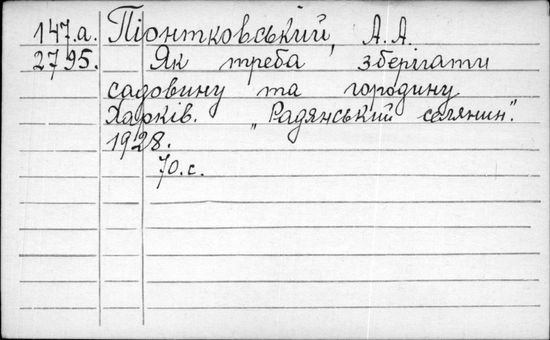 147.а. Піонтковський, А. А.
2795. Як треба зберігати
садовину та городину
Харків. „Радянський селянин".
1928.
70.с.